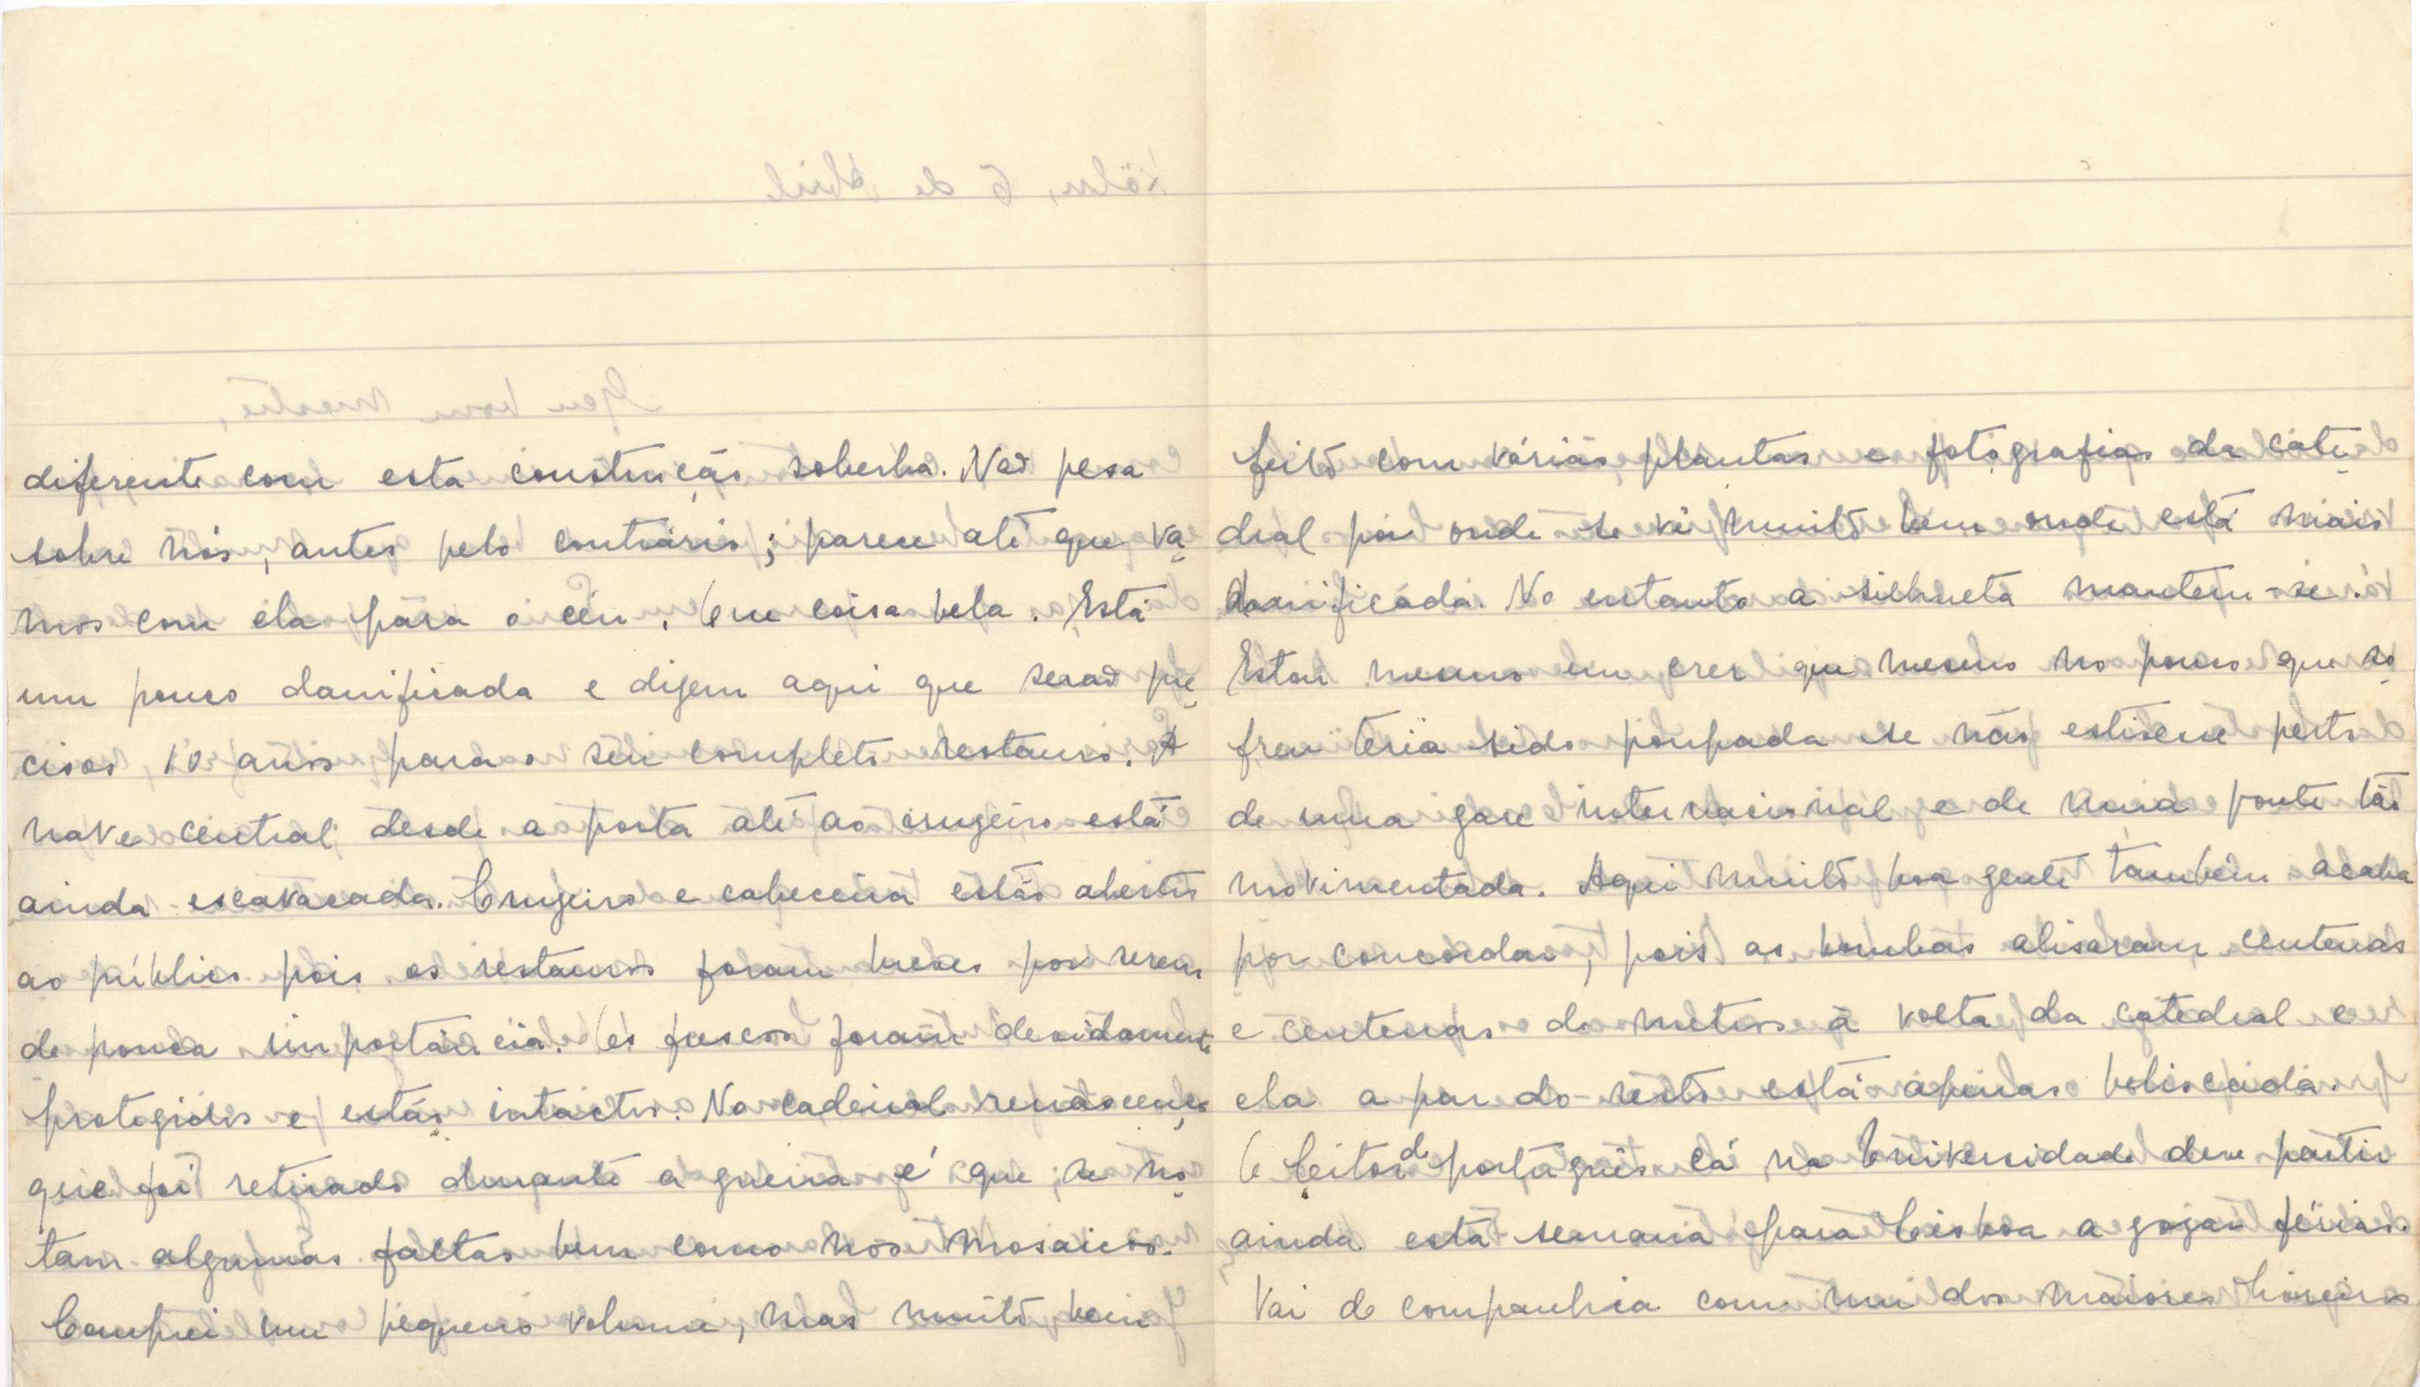 diferente com esta construção soberba. Não pesa
sobre nós, antes pelo contrário; parece até que va-
mos com ela para o céu. Que coisa bela. Está
um pouco danificada e dizem aqui que serão pre-
cisos 10 anos para o seu completo restauro. A
nave central desde a porta até ao cruzeiro está
ainda escavacada. Cruzeiro e cabeceira estão abertos
ao público pois os restauros foram breves por serem
de pouca importância. Os frescos foram devidamente
protegidos e estão intactos. No cadeiral renascença
que foi retirado durante a guerra é que se no-
tam algumas faltas bem como nos mosaicos.
Comprei um pequeno volume, mas muito bem
feito com várias plantas e fotografias da cate-
dral por onde se vê muito bem onde está mais
danificada. No entanto a silhueta mantem-se.
Estou mesmo em crer que mesmo no pouco que so-
freu teria sido poupada se não estivesse perto
de uma gare internacional e de uma ponte tão
movimentada. Aqui muito boa gente também acaba
por concordar, pois as bombas alisaram centenas
e centenas de metros à volta da catedral e
ela a par do resto está apenas beliscada.
O Leitor de português cá na Universidade deve partir
ainda esta semana para Lisboa a gozar férias.
Vai de companhia com um dos maiores livreiros